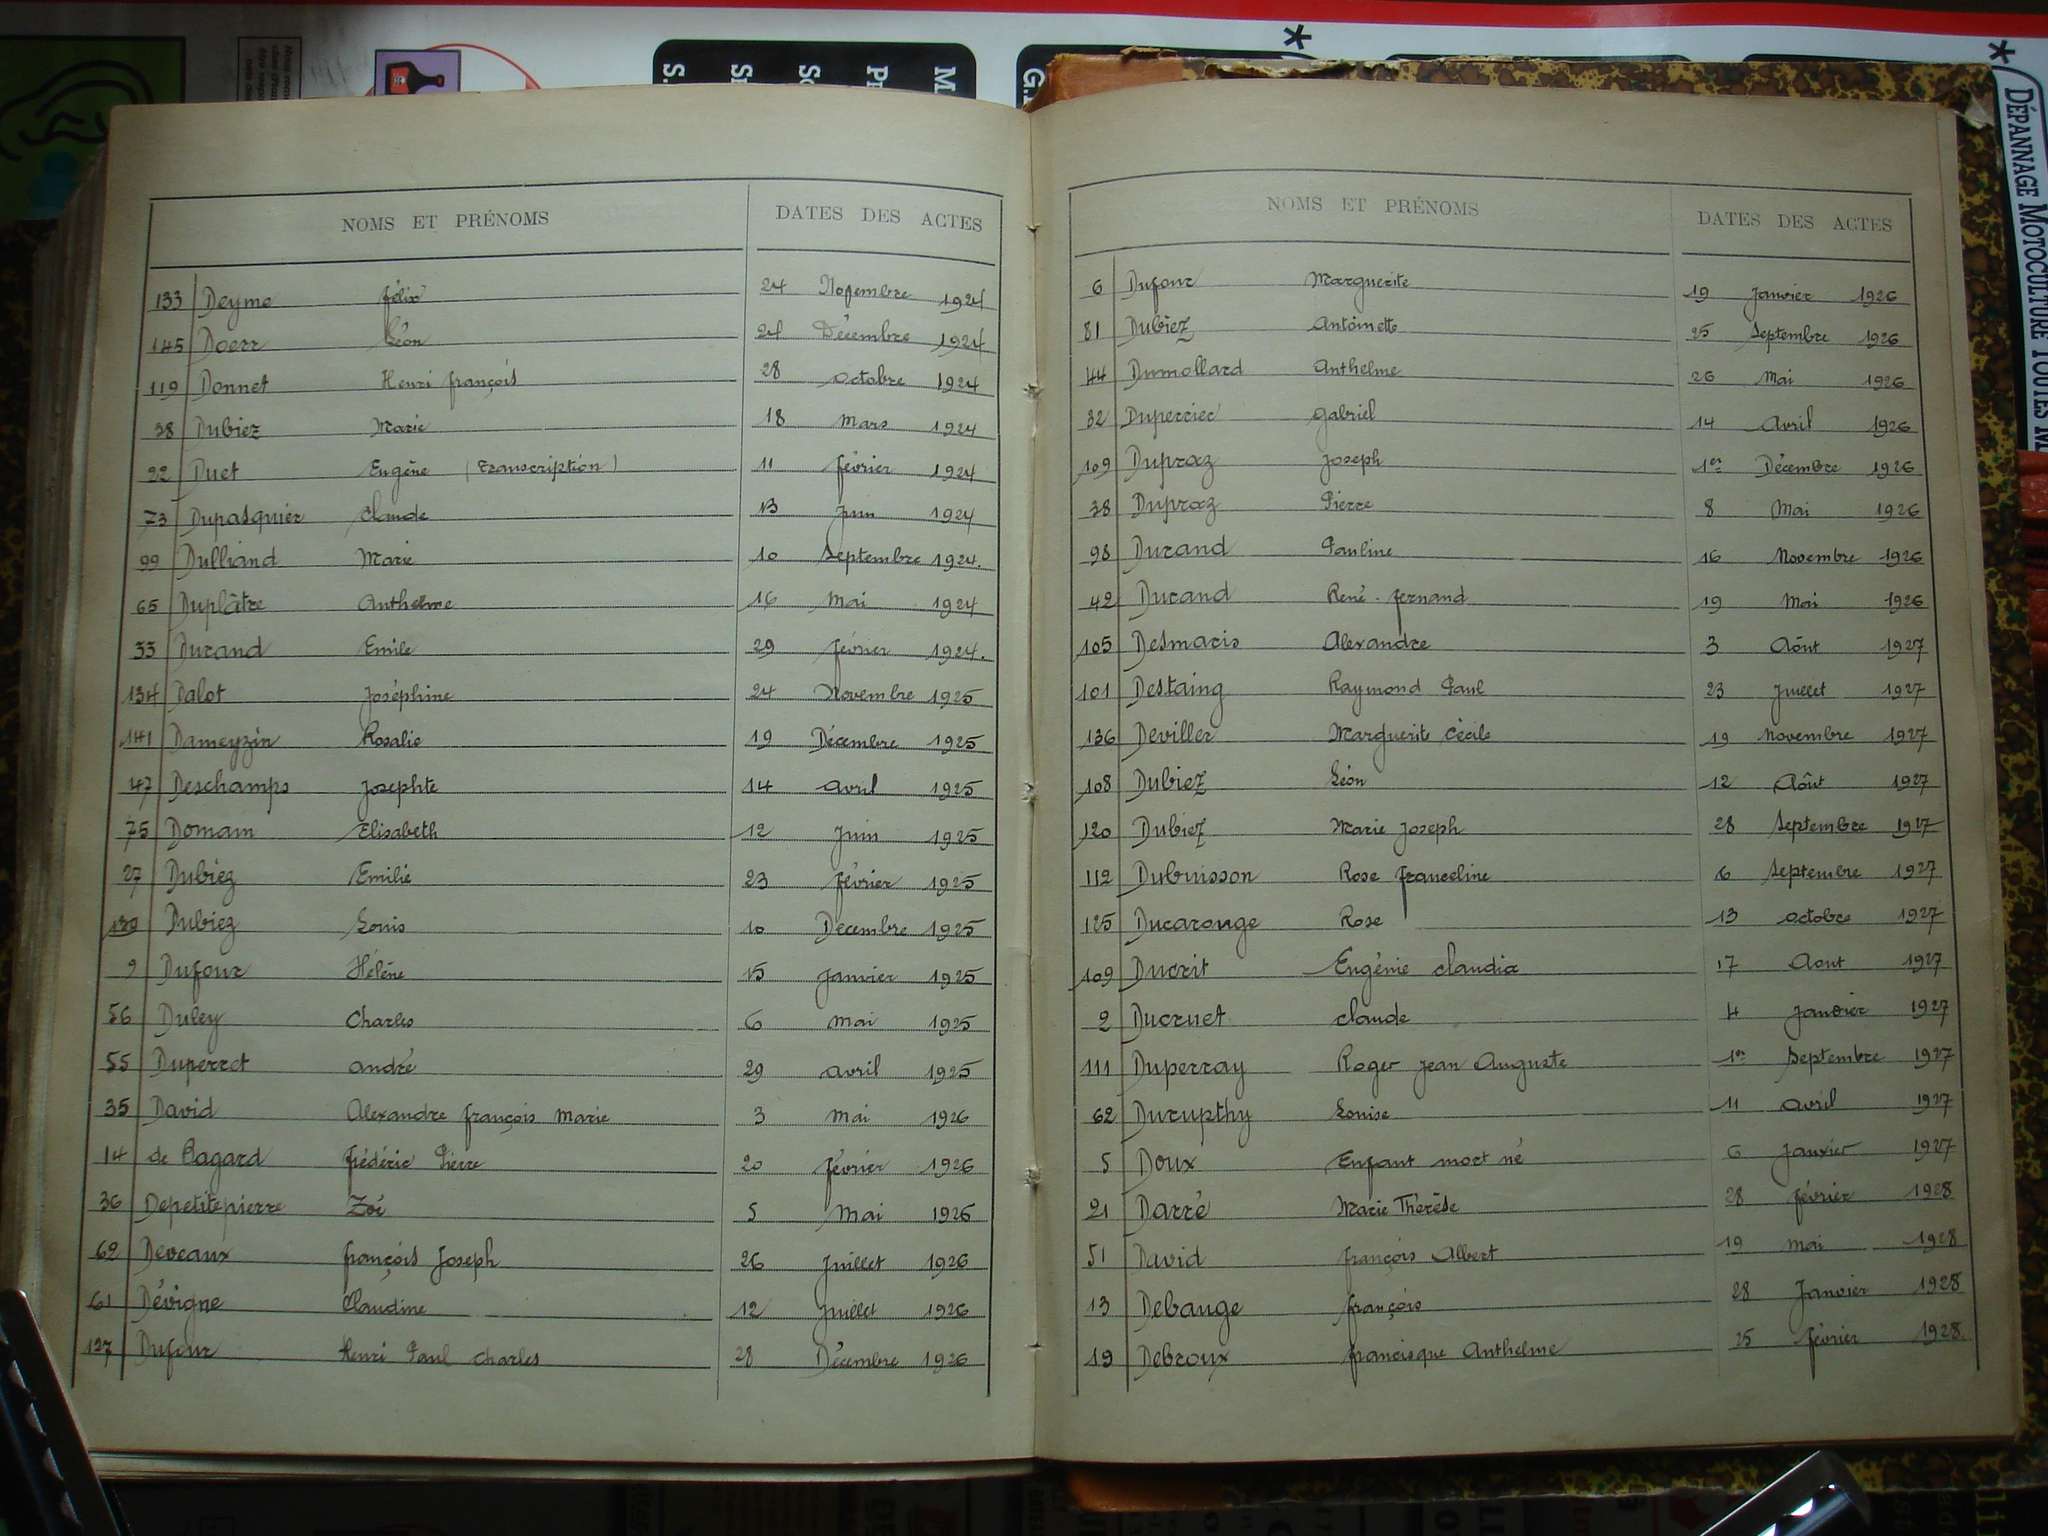 DÉPANNAGE MOTOCULTURE TOUTES M
NOMS ET PRÉNOMS DATES DES ACTES
133 Deyme félix 24 Novembre 1924
145 Doerr Léon 24 Décembre 1924
119 Donnet Henri françois 28 octobre 1924
38 Dubiez Marie 18 Mars 1924
22 Duet Eugène (Transcription) 11 février 1924
73 Dupasquier Claude 13 Juin 1924
99 Dulliand Marie 10 Septembre 1924.
65 Duplâtre Anthelme 16 Mai 1924
33 Durand Emile 29 février 1924.
134 Dalot Joséphine 24 Novembre 1925
141 Dameyzin Rosalie 19 Décembre 1925
47 Deschamps Josephte 14 avril 1925
75 Domain Elisabeth 12 Juin 1925
27 Dubiez Emilie 23 février 1925
139 Dubiez Louis 10 Décembre 1925
9 Dufour Hélène 15 Janvier 1925
56 Duley Charles 6 Mai 1925
55 Duperret andré 29 avril 1925
35 David Alexandre françois Marie 3 Mai 1926
14 de Bagard frédéric Pierre 20 février 1926
36 Depetitepierre Zoé 5 Mai 1926
69 Deveaux françois Joseph 26 Juillet 1926
61 Dévigne Claudine 12 Juillet 1926
127 Dufour Henri Paul Charles 28 Décembre 1926
NOMS ET PRÉNOMS DATES DES ACTES
6 Dufour Marguerite 19 Janvier 1926
81 Dubiez Antoinette 25 Septembre 1926
44 Dumollard Anthelme 26 Mai 1926
32 Duperrier Gabriel 14 Avril 1926
109 Dupraz Joseph 1er Décembre 1926
38 Dupraz Pierre 8 Mai 1926
98 Durand Pauline 16 Novembre 1926
42 Durand René-fernand 19 Mai 1926
105 Desmaris Alexandre 3 Août 1927
101 Destaing Raymond Paul 23 Juillet 1927
136 Deviller Marguerite Cécile 19 Novembre 1927
108 Dubiez Léon 12 Août 1927
120 Dubiez Marie Joseph 28 Septembre 1927
112 Dubuisson Rose franceline 6 Septembre 1927
125 Ducarouge Rose 13 octobre 1927
109 Ducrit Eugénie Claudia 17 Aout 1927
2 Ducruet Claude 4 Janvier 1927
111 Duperray Roger Jean Auguste 1er Septembre 1927
62 Durupthy Louise 11 avril 1927
5 Doux Enfant mort né 6 Janvier 1927
21 Darré Marie Thérèse 28 février 1928
51 David françois Albert 19 Mai 1928
13 Debauge françois 28 Janvier 1928
19 Debroux francisque Anthelme 25 février 1928.